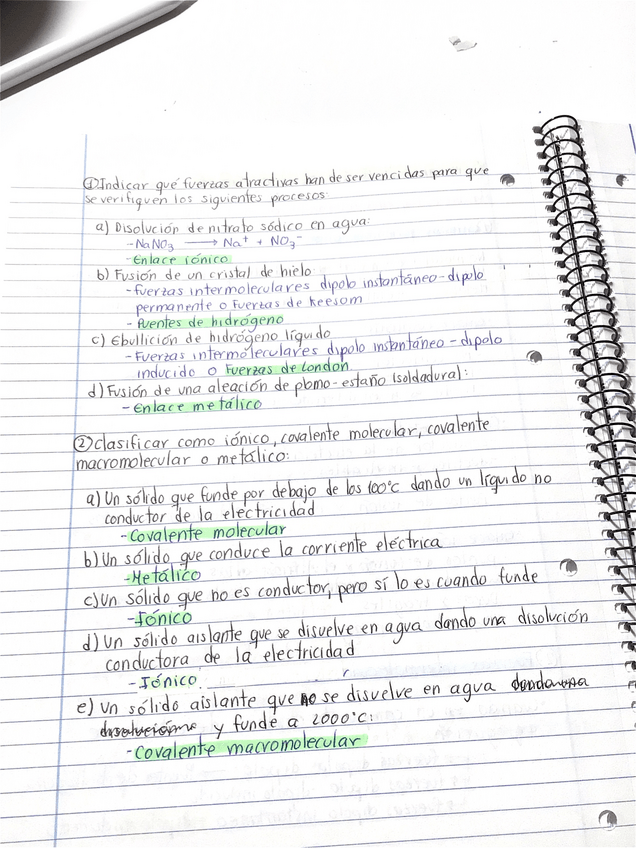 ①Indicar qué fuerzas atractivas han de ser vencidas para que
se verifiquen los siguientes procesos:
a) Disolución de nitrato sódico en agua:
- NaNO₃ ⟶ Na⁺ + NO₃⁻
- Enlace iónico
b) Fusión de un cristal de hielo
- fuerzas intermoleculares dipolo instantáneo-dipolo
permanente o fuerzas de keesom
- Puentes de hidrógeno
c) Ebullición de hidrógeno líquido
- Fuerzas intermoleculares dipolo instantáneo - dipolo
inducido o Fuerzas de London
d) Fusión de una aleación de plomo-estaño (soldadura):
- Enlace metálico
②Clasificar como iónico, covalente molecular, covalente
macromolecular o metálico:
a) Un sólido que funde por debajo de los 100°c dando un líquido no
conductor de la electricidad
- Covalente molecular
b) Un sólido que conduce la corriente eléctrica
- Metálico
c) Un sólido que no es conductor, pero sí lo es cuando funde
- Iónico
d) Un sólido aislante que se disuelve en agua dando una disolución
conductora de la electricidad
- Iónico.
e) Un sólido aislante que no se disuelve en agua
y funde a 2000°c:
- Covalente macromolecular